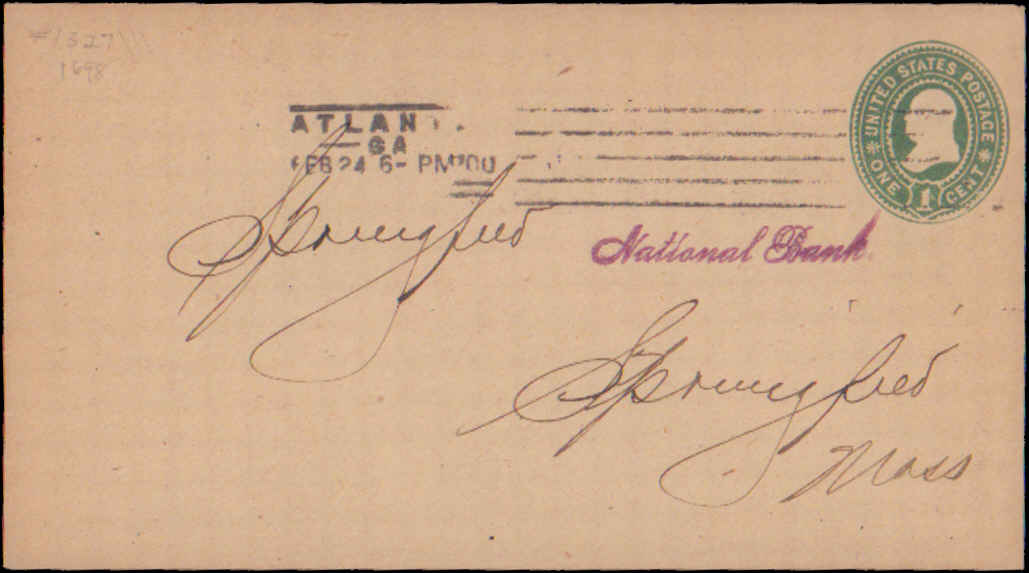 #1327
1698
UNITED STATES POSTAGE
ONE 1 CENT
ATLAN
GA
FEB 24 6- PM '00
Springfield
National Bank.
Springfield
Mass